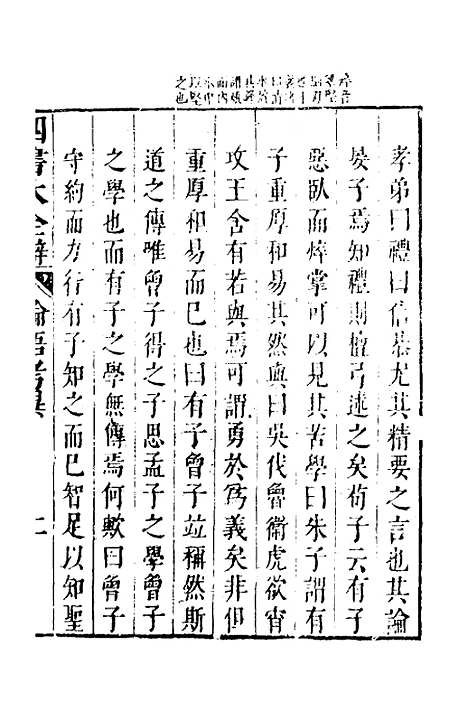 孝弟曰禮曰信恭尤其精要之言也其論
晏子焉知禮則檀弓述之矣荀子云有子
惡臥而焠掌可以見其苦學曰朱子謂有
子重厚和易其然與曰吳伐魯微虎欲宵
攻王舍有若與焉可謂勇於爲義矣非但
重厚和易而已也曰有子曾子竝稱然斯
道之傳唯曾子得之子思孟子之學曾子
之學也而有子之學無傳焉何歟曰曾子
守約而力行有子知之而已智足以知聖
四書大全辯 論語考異 二